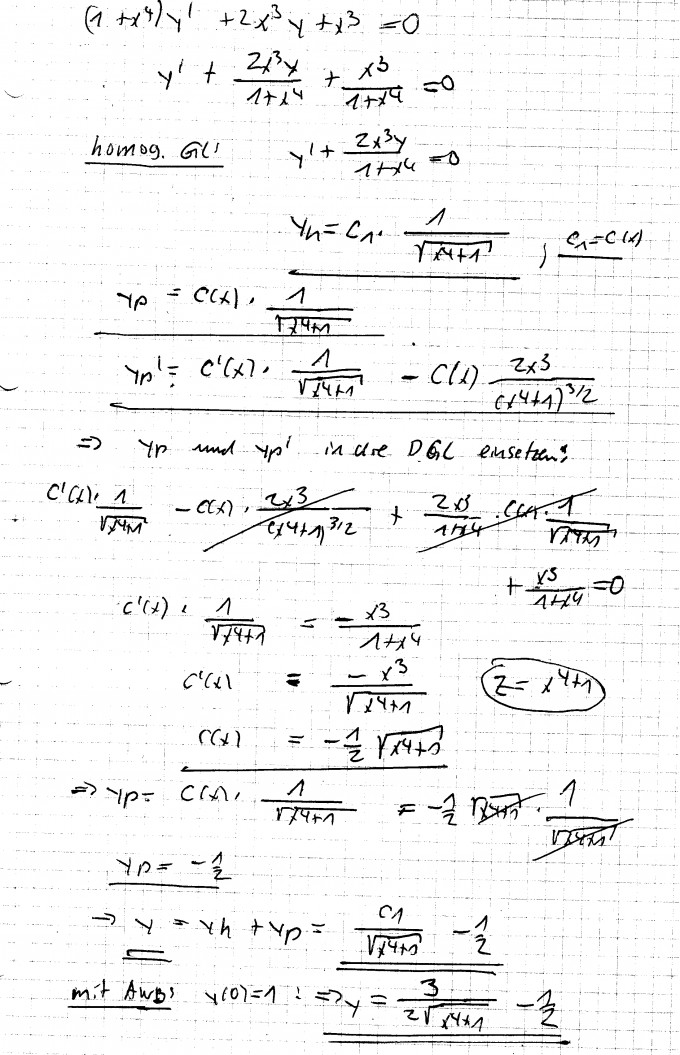 (1 + x⁴) y' + 2x³y + x³ = 0
y' + 2x³y/(1+x⁴) + x³/(1+x⁴) = 0
homog. Gl: y' + 2x³y/(1+x⁴) = 0
yh = C₁ · 1/√(x⁴+1) ; C₁ = C(x)
yp = C(x) · 1/√(x⁴+1)
yp' = C'(x) · 1/√(x⁴+1) − C(x) 2x³/(x⁴+1)^(3/2)
=> yp und yp' in die DGL einsetzen:
C'(x) · 1/√(x⁴+1) − C(x) · 2x³/(x⁴+1)^(3/2) + 2x³/(1+x⁴) · C(x) · 1/√(x⁴+1)
+ x³/(1+x⁴) = 0
C'(x) · 1/√(x⁴+1) = − x³/(1+x⁴)
C'(x) = −x³/√(x⁴+1) z = x⁴+1
C(x) = −1/2 √(x⁴+1)
=> yp = C(x) · 1/√(x⁴+1) = −1/2 √(x⁴+1) · 1/√(x⁴+1)
yp = −1/2
→ y = yh + yp = C1/√(x⁴+1) − 1/2
mit AWB: y(0)=1 : => y = 3/(2√(x⁴+1)) − 1/2